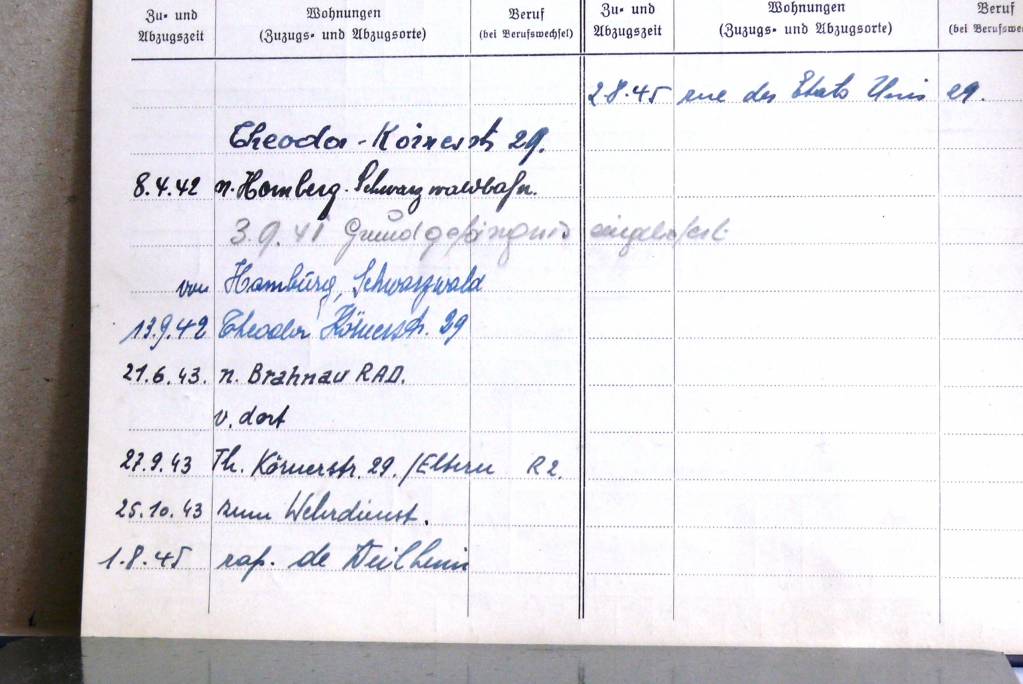 Zu- und Abzugszeit
Wohnungen
(Zuzugs- und Abzugsorte)
Beruf
(bei Berufswechsel)
Zu- und Abzugszeit
Wohnungen
(Zuzugs- und Abzugsorte)
Beruf
(bei Berufswe
Theodor-Körnerstr 29.
8.4.42 n. Homberg-Schwarzwaldbahn.
3.9.41 eingeliefert
von Hamburg, Schwarzwald
13.9.42 Theodor Körnerstr. 29
21.6.43. n. Brahnau RAD.
v. dort
27.9.43 Th. Körnerstr. 29. /Eltern R2.
25.10.43 zum Wehrdienst.
1.8.45 rap. de Weilheim
2.8.45 rue des Etats Unis 29.